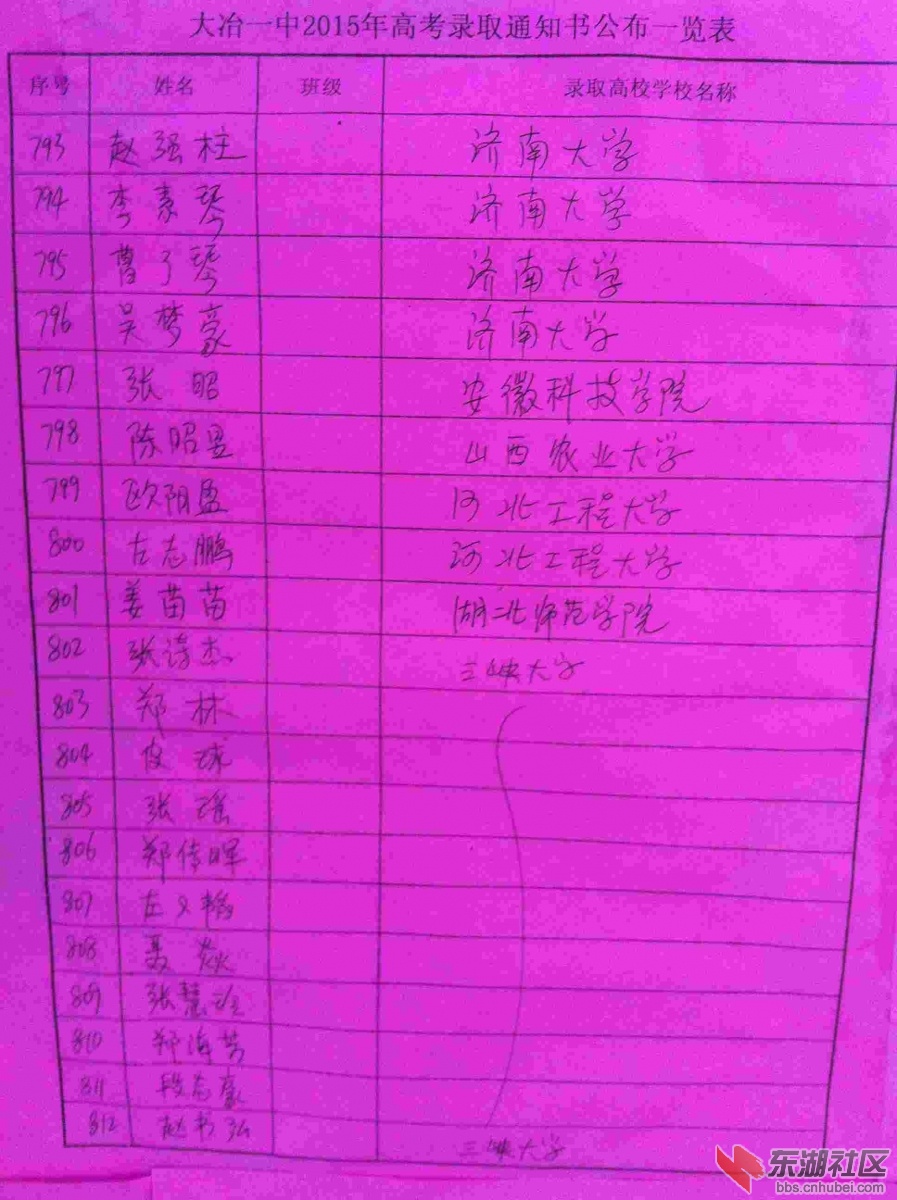 大冶一中2015年高考录取通知书公布一览表
序号 姓名 班级 录取高校学校名称
793 赵强柱 济南大学
794 李素琴 济南大学
795 曹了琴 济南大学
796 吴梦豪 济南大学
797 张昭 安徽科技学院
798 陈昭昱 山西农业大学
799 欧阳盈 河北工程大学
800 左志鹏 河北工程大学
801 姜苗苗 湖北师范学院
802 张诗杰 三峡大学
803 郑林
804 皮球
805 张瑶
806 郑传晖
807 左义
808 聂焱
809 张慧
810 郑海芳
811 段志豪
812 赵书弘 三峡大学
东湖社区
bbs.cnhubei.com